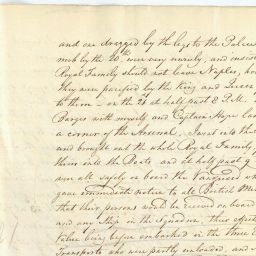 and one dragged by the legs to the Palace
mob by the 20th were very unruly, and insis
Royal Family should not leave Naples, how
they were pacified by the King and Queen
to them – on the 21 at half past 8 P.M.
Barges with myself and Captain Hope lan
a corner of the Arsenal, I went into the
and brought out the whole Royal Family
them into the Boats and at half past 9
were all safely on board the Vanguard wh
gave immediate notice to all British Me
that their persons would be received on board
and any Ship in the Squadron, their effect
value being before embarked in the three
Transports who were partly unloaded, and